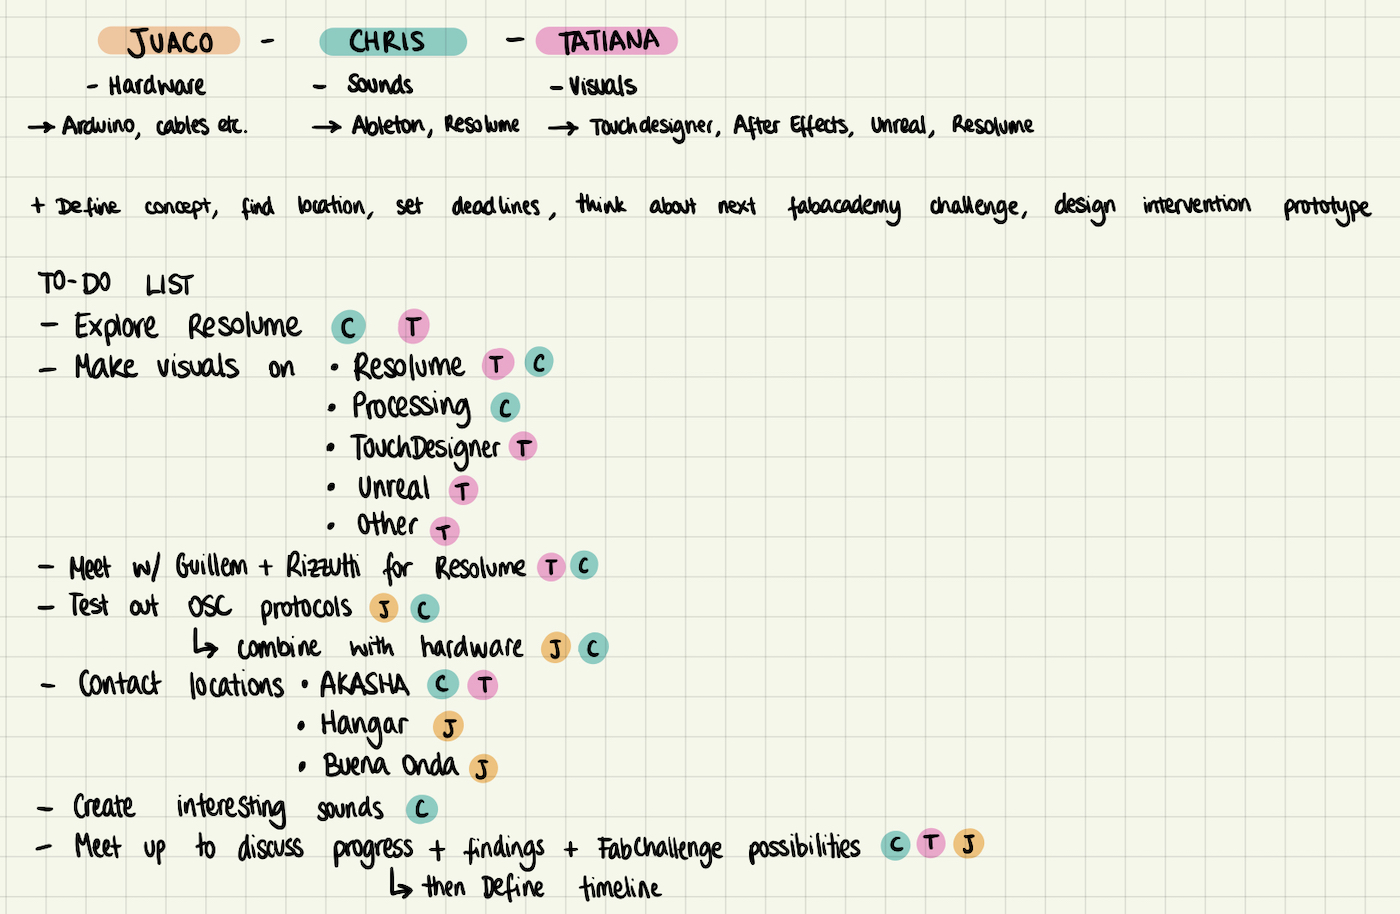 JUACO - CHRIS - TATIANA
- Hardware - Sounds - Visuals
→ Arduino, cables etc. → Ableton, Resolume → Touchdesigner, After Effects, Unreal, Resolume
+ Define concept, find location, set deadlines, think about next fabacademy challenge, design intervention prototype
TO-DO LIST
- Explore Resolume C T
- Make visuals on • Resolume T C
• Processing C
• TouchDesigner T
• Unreal T
• Other T
- Meet w/ Guillem + Rizzutti for Resolume T C
- Test out OSC protocols J C
↳ combine with hardware J C
- Contact locations • AKASHA C T
• Hangar J
• Buena Onda J
- Create interesting sounds C
- Meet up to discuss progress + findings + FabChallenge possibilities C T J
↳ then Define timeline